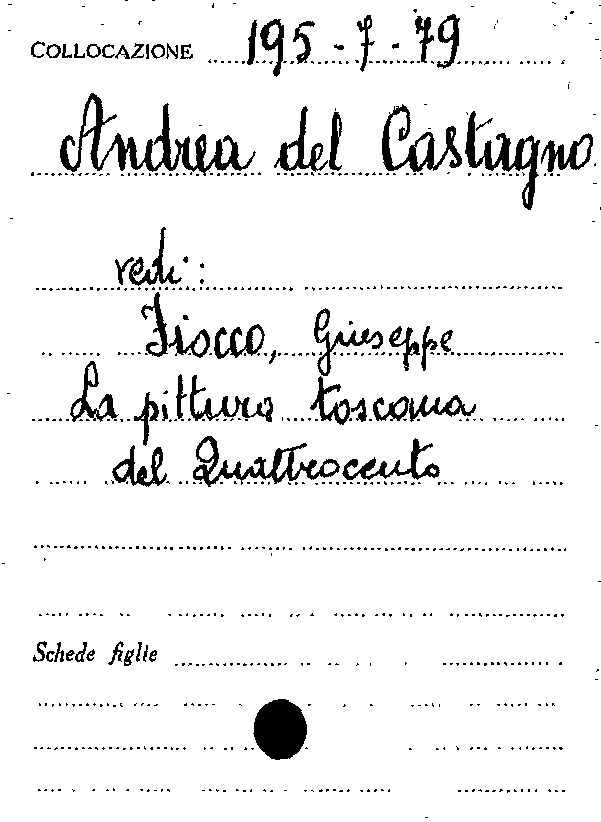 COLLOCAZIONE 195-7-79
Andrea del Castagno
vedi:
Fiocco, Giuseppe
La pittura toscana
del Quattrocento
Schede figlie